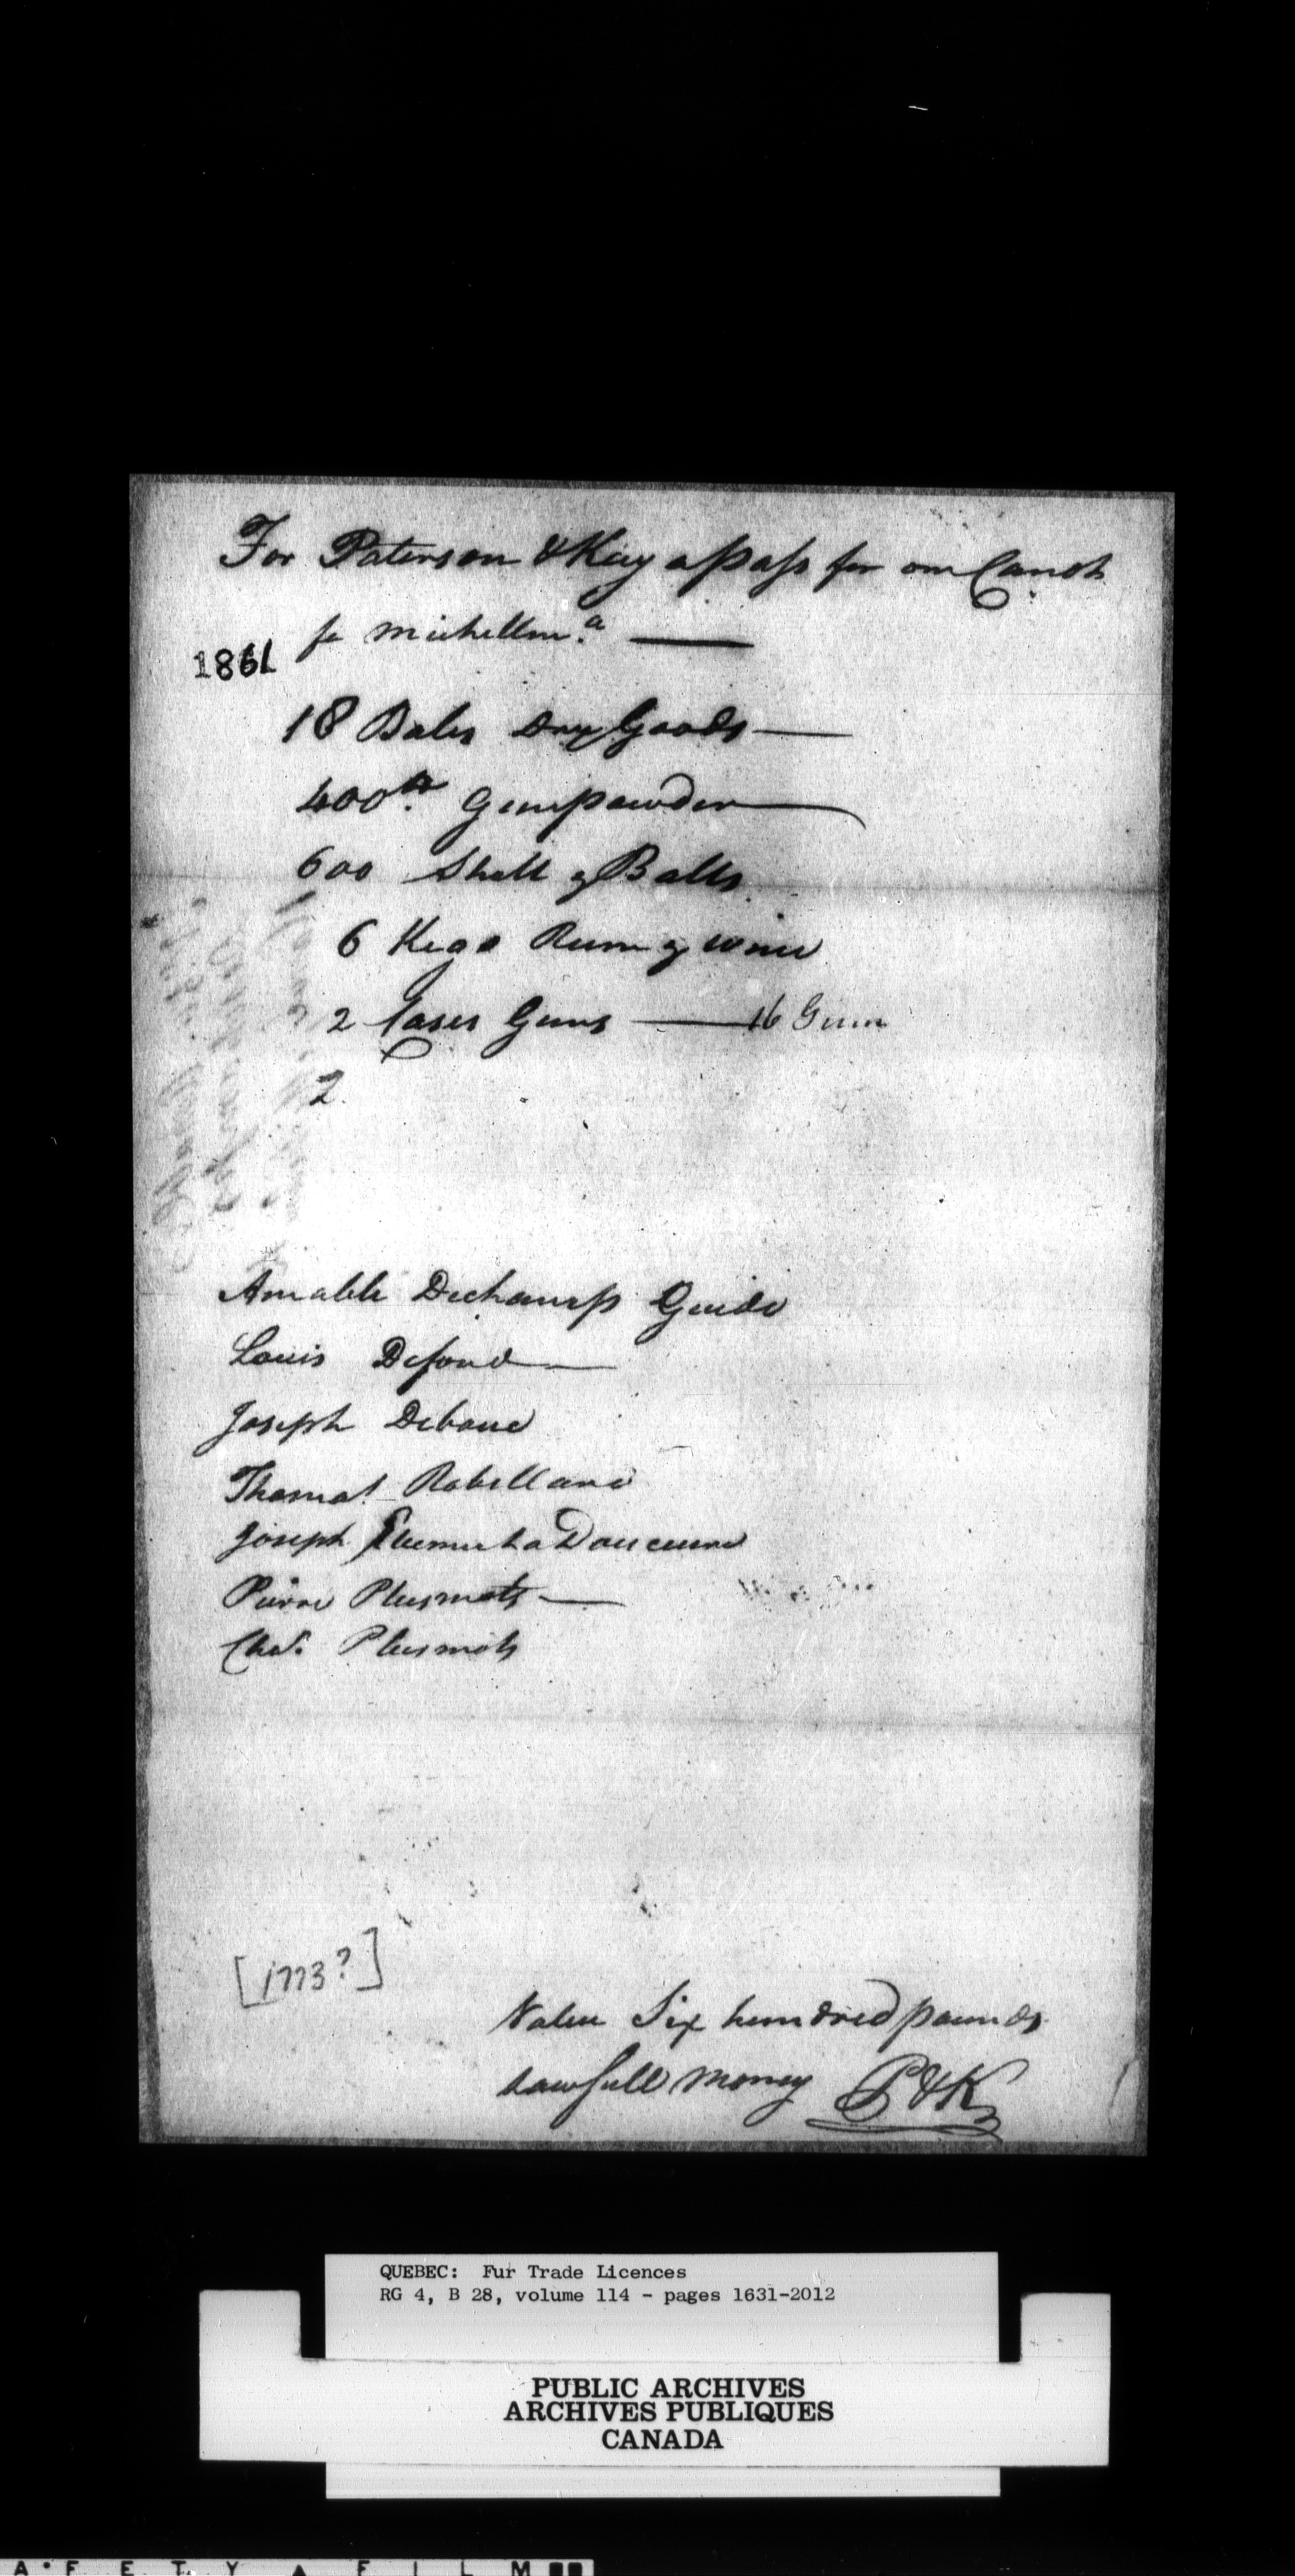 For Paterson & Kay a Pass for one Canoh
for Michellm.a
1861
18 Bales Dry Goods
400 lb Gunpowder
600 Shott & Balls
6 Kegs Rum & wine
2 Cases Guns 16 Guns
2.
Amable Dechamp Guide
Louis Defond
Joseph Deboue
Thomas Robillard
Joseph La Douceure
Pierre Plusmots
Chas. Plusmots
[1773?]
Value Six hundred pounds
Lawfull Money P&K
QUEBEC: Fur Trade Licences
RG 4, B 28, volume 114 - pages 1631-2012
PUBLIC ARCHIVES
ARCHIVES PUBLIQUES
CANADA
A • F E T Y ▲ F I L M